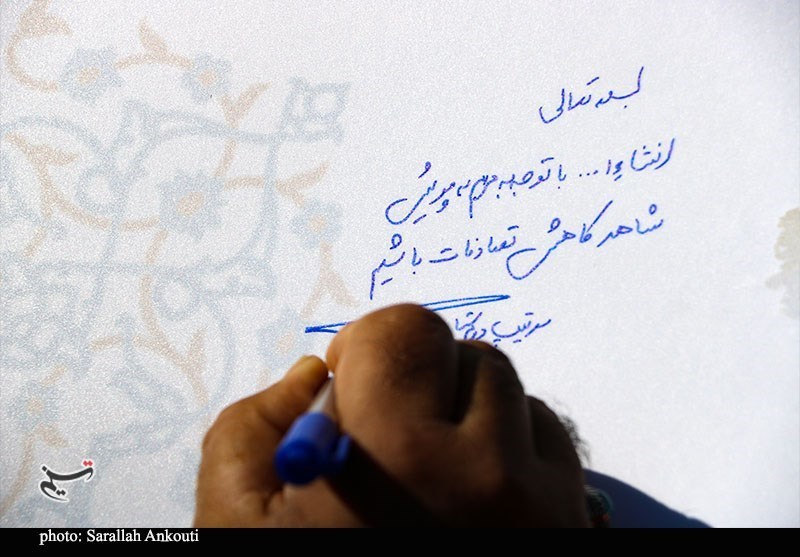 بسمه تعالی
انشاءا... با توجه به مردم و پلیس
شاهد کاهش تصادفات باشیم
سرتیپ دوم
تسنیم
photo: Sarallah Ankouti